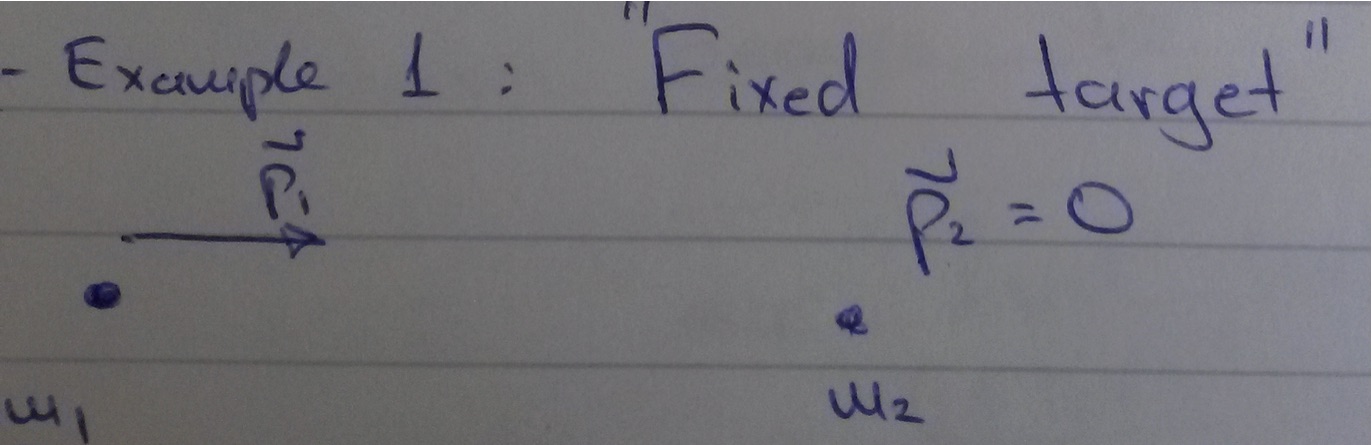 - Example 1 : "Fixed target"
p⃗₁
p⃗₂ = 0
m₁ m₂